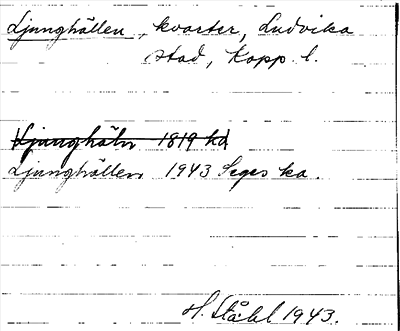 Ljunghällen, kvarter, Ludvika
stad, Kopp. l.
Ljunghäln 1819 hd
Ljunghällen 1943 Seges ka.
H. Ståhl 1943.